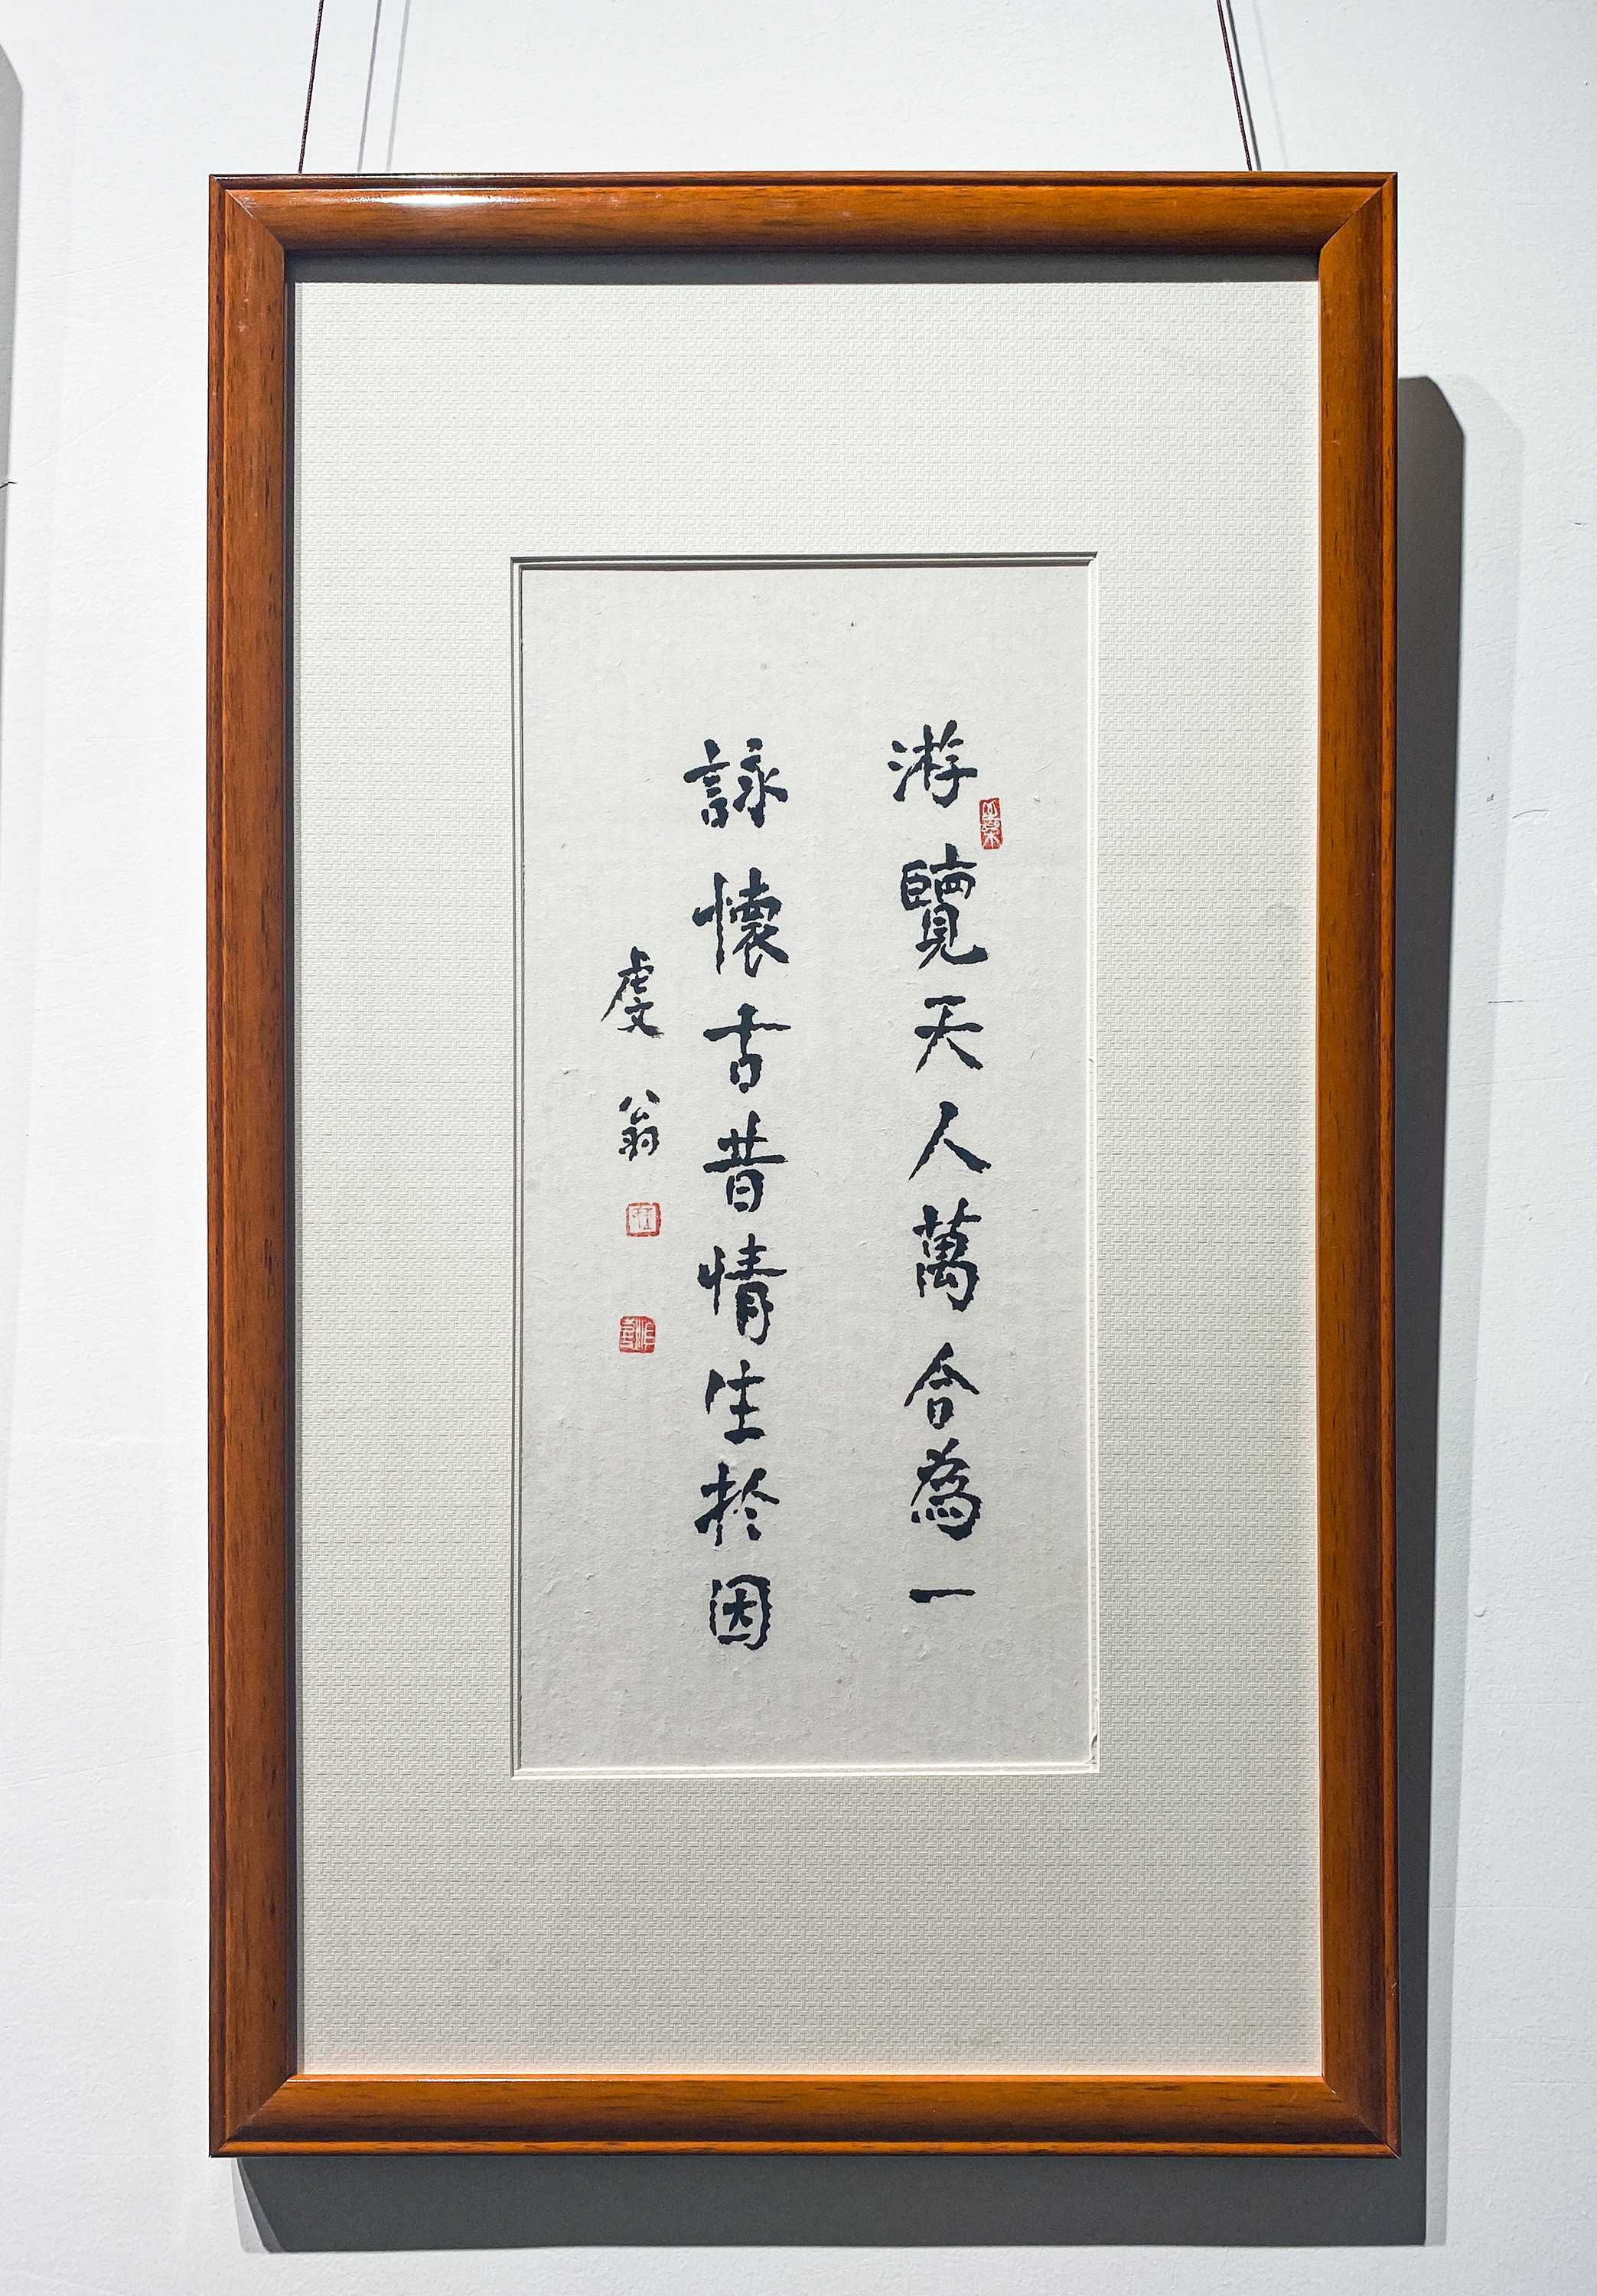 游覽天人萬合為一
詠懷古昔情生於因
虔翁